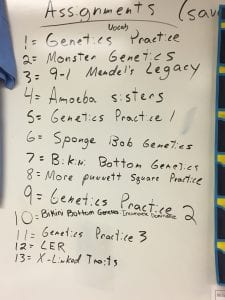 Assignments (sav
Vocab
1= Genetics Practice
2= Monster Genetics
3= 9-1 Mendel's Legacy
4= Amoeba sisters
5= Genetics Practice 1
6= Sponge Bob Genetics
7= Bikini Bottom Genetics
8= More punnett Square Practice
9= Genetics Practice 2
10= Bikini Bottom Genetics Incomplete Dominance
11= Genetics Practice 3
12= LER
13= X-Linked Traits